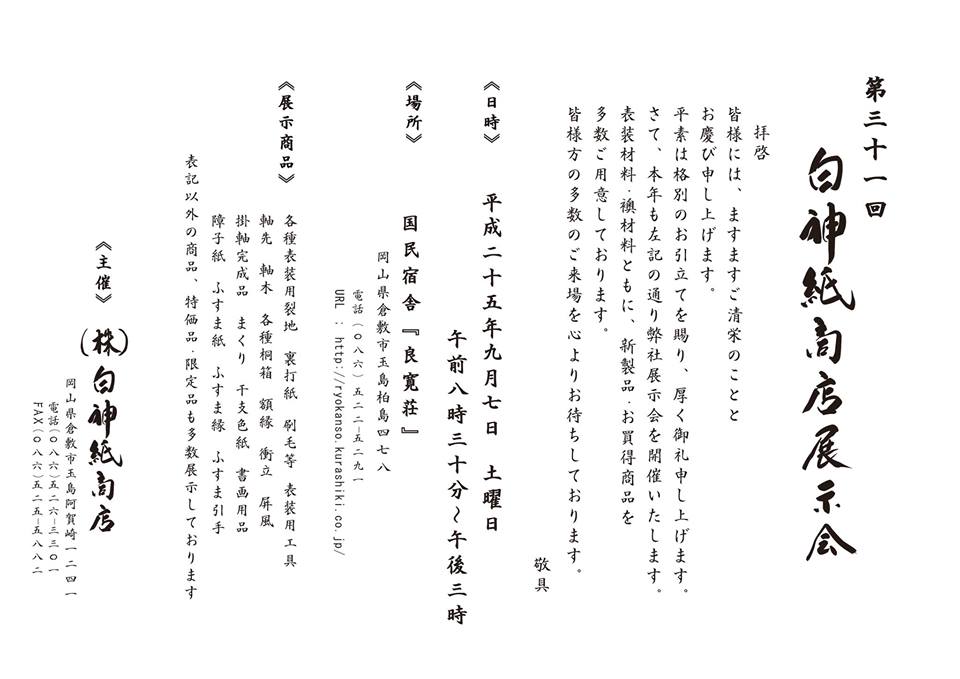 第三十一回
白神紙商店展示会
拝啓
皆様には、ますますご清栄のことと
お慶び申し上げます。
平素は格別のお引立てを賜り、厚く御礼申し上げます。
さて、本年も左記の通り弊社展示会を開催いたします。
表装材料・襖材料ともに、新製品・お買得商品を
多数ご用意しております。
皆様方の多数のご来場を心よりお待ちしております。
敬具
《日時》 平成二十五年九月七日 土曜日
午前八時三十分〜午後三時
《場所》 国民宿舎『良寛荘』
岡山県倉敷市玉島柏島四七八
電話(〇八六)五二二―五二九一
URL : http://ryokanso.kurashiki.co.jp/
《展示商品》
各種表装用裂地 裏打紙 刷毛等 表装用工具
軸先 軸木 各種桐箱 額縁 衝立 屏風
掛軸完成品 まくり 干支色紙 書画用品
障子紙 ふすま紙 ふすま縁 ふすま引手
表記以外の商品、特価品・限定品も多数展示しております
《主催》 (株)白神紙商店
岡山県倉敷市玉島阿賀崎一二四一
電話(〇八六)五二六―三三〇一
FAX(〇八六)五二五―五八八二